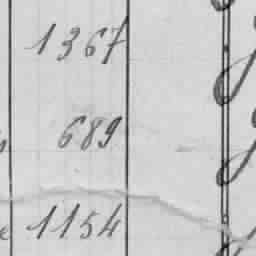 1367
689
1154